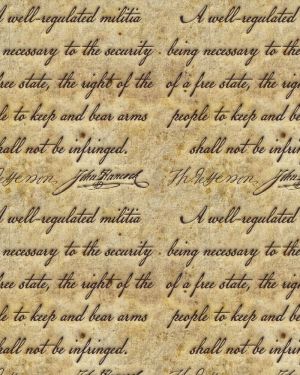 A well-regulated militia A well-regulated
necessary to the security being necessary to the
free state, the right of the of a free state, the right
to keep and bear arms people to keep and bear
hall not be infringed. shall not be infringed.
efferson. John Hancock Th Jefferson.
A well-regulated militia A well-regulated
necessary to the security being necessary to the
free state, the right of the of a free state, the right
to keep and bear arms people to keep and bear
hall not be infringed. shall not be infringed.